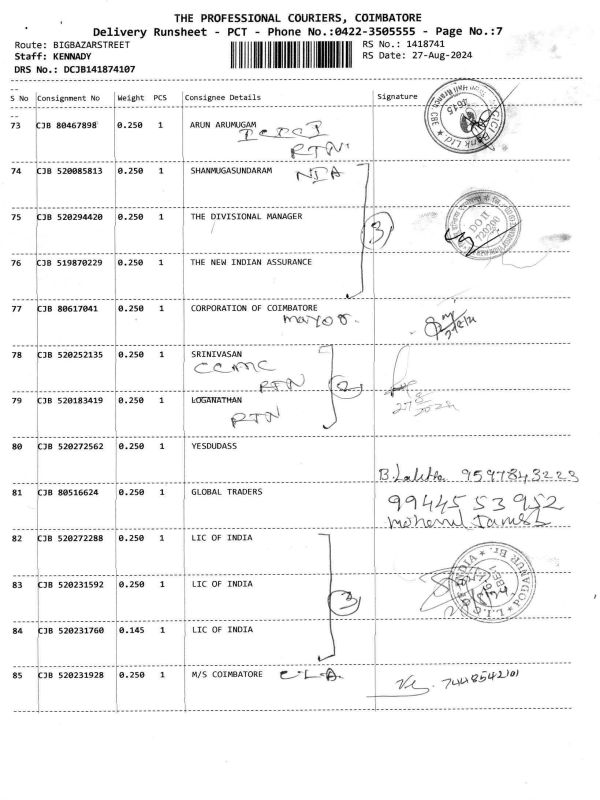 THE PROFESSIONAL COURIERS, COIMBATORE
Delivery Runsheet - PCT - Phone No.:0422-3505555 - Page No.:7
Route: BIGBAZARSTREET RS No.: 1418741
Staff: KENNADY RS Date: 27-Aug-2024
DRS No.: DCJB141874107
S No Consignment No Weight PCS Consignee Details Signature
73 CJB 80467898 0.250 1 ARUN ARUMUGAM
RTN
74 CJB 520085813 0.250 1 SHANMUGASUNDARAM NIA
75 CJB 520294420 0.250 1 THE DIVISIONAL MANAGER
3
DO II
720200
76 CJB 519870229 0.250 1 THE NEW INDIAN ASSURANCE
77 CJB 80617041 0.250 1 CORPORATION OF COIMBATORE
mayor.
78 CJB 520252135 0.250 1 SRINIVASAN
CCMC
RTN
2
79 CJB 520183419 0.250 1 LOGANATHAN
RTN
27/8/2024
80 CJB 520272562 0.250 1 YESDUDASS
B. Lalitha 9597843223
81 CJB 80516624 0.250 1 GLOBAL TRADERS
9944553952
82 CJB 520272288 0.250 1 LIC OF INDIA
83 CJB 520231592 0.250 1 LIC OF INDIA
3
84 CJB 520231760 0.145 1 LIC OF INDIA
85 CJB 520231928 0.250 1 M/S COIMBATORE C.L.A.
7448542101